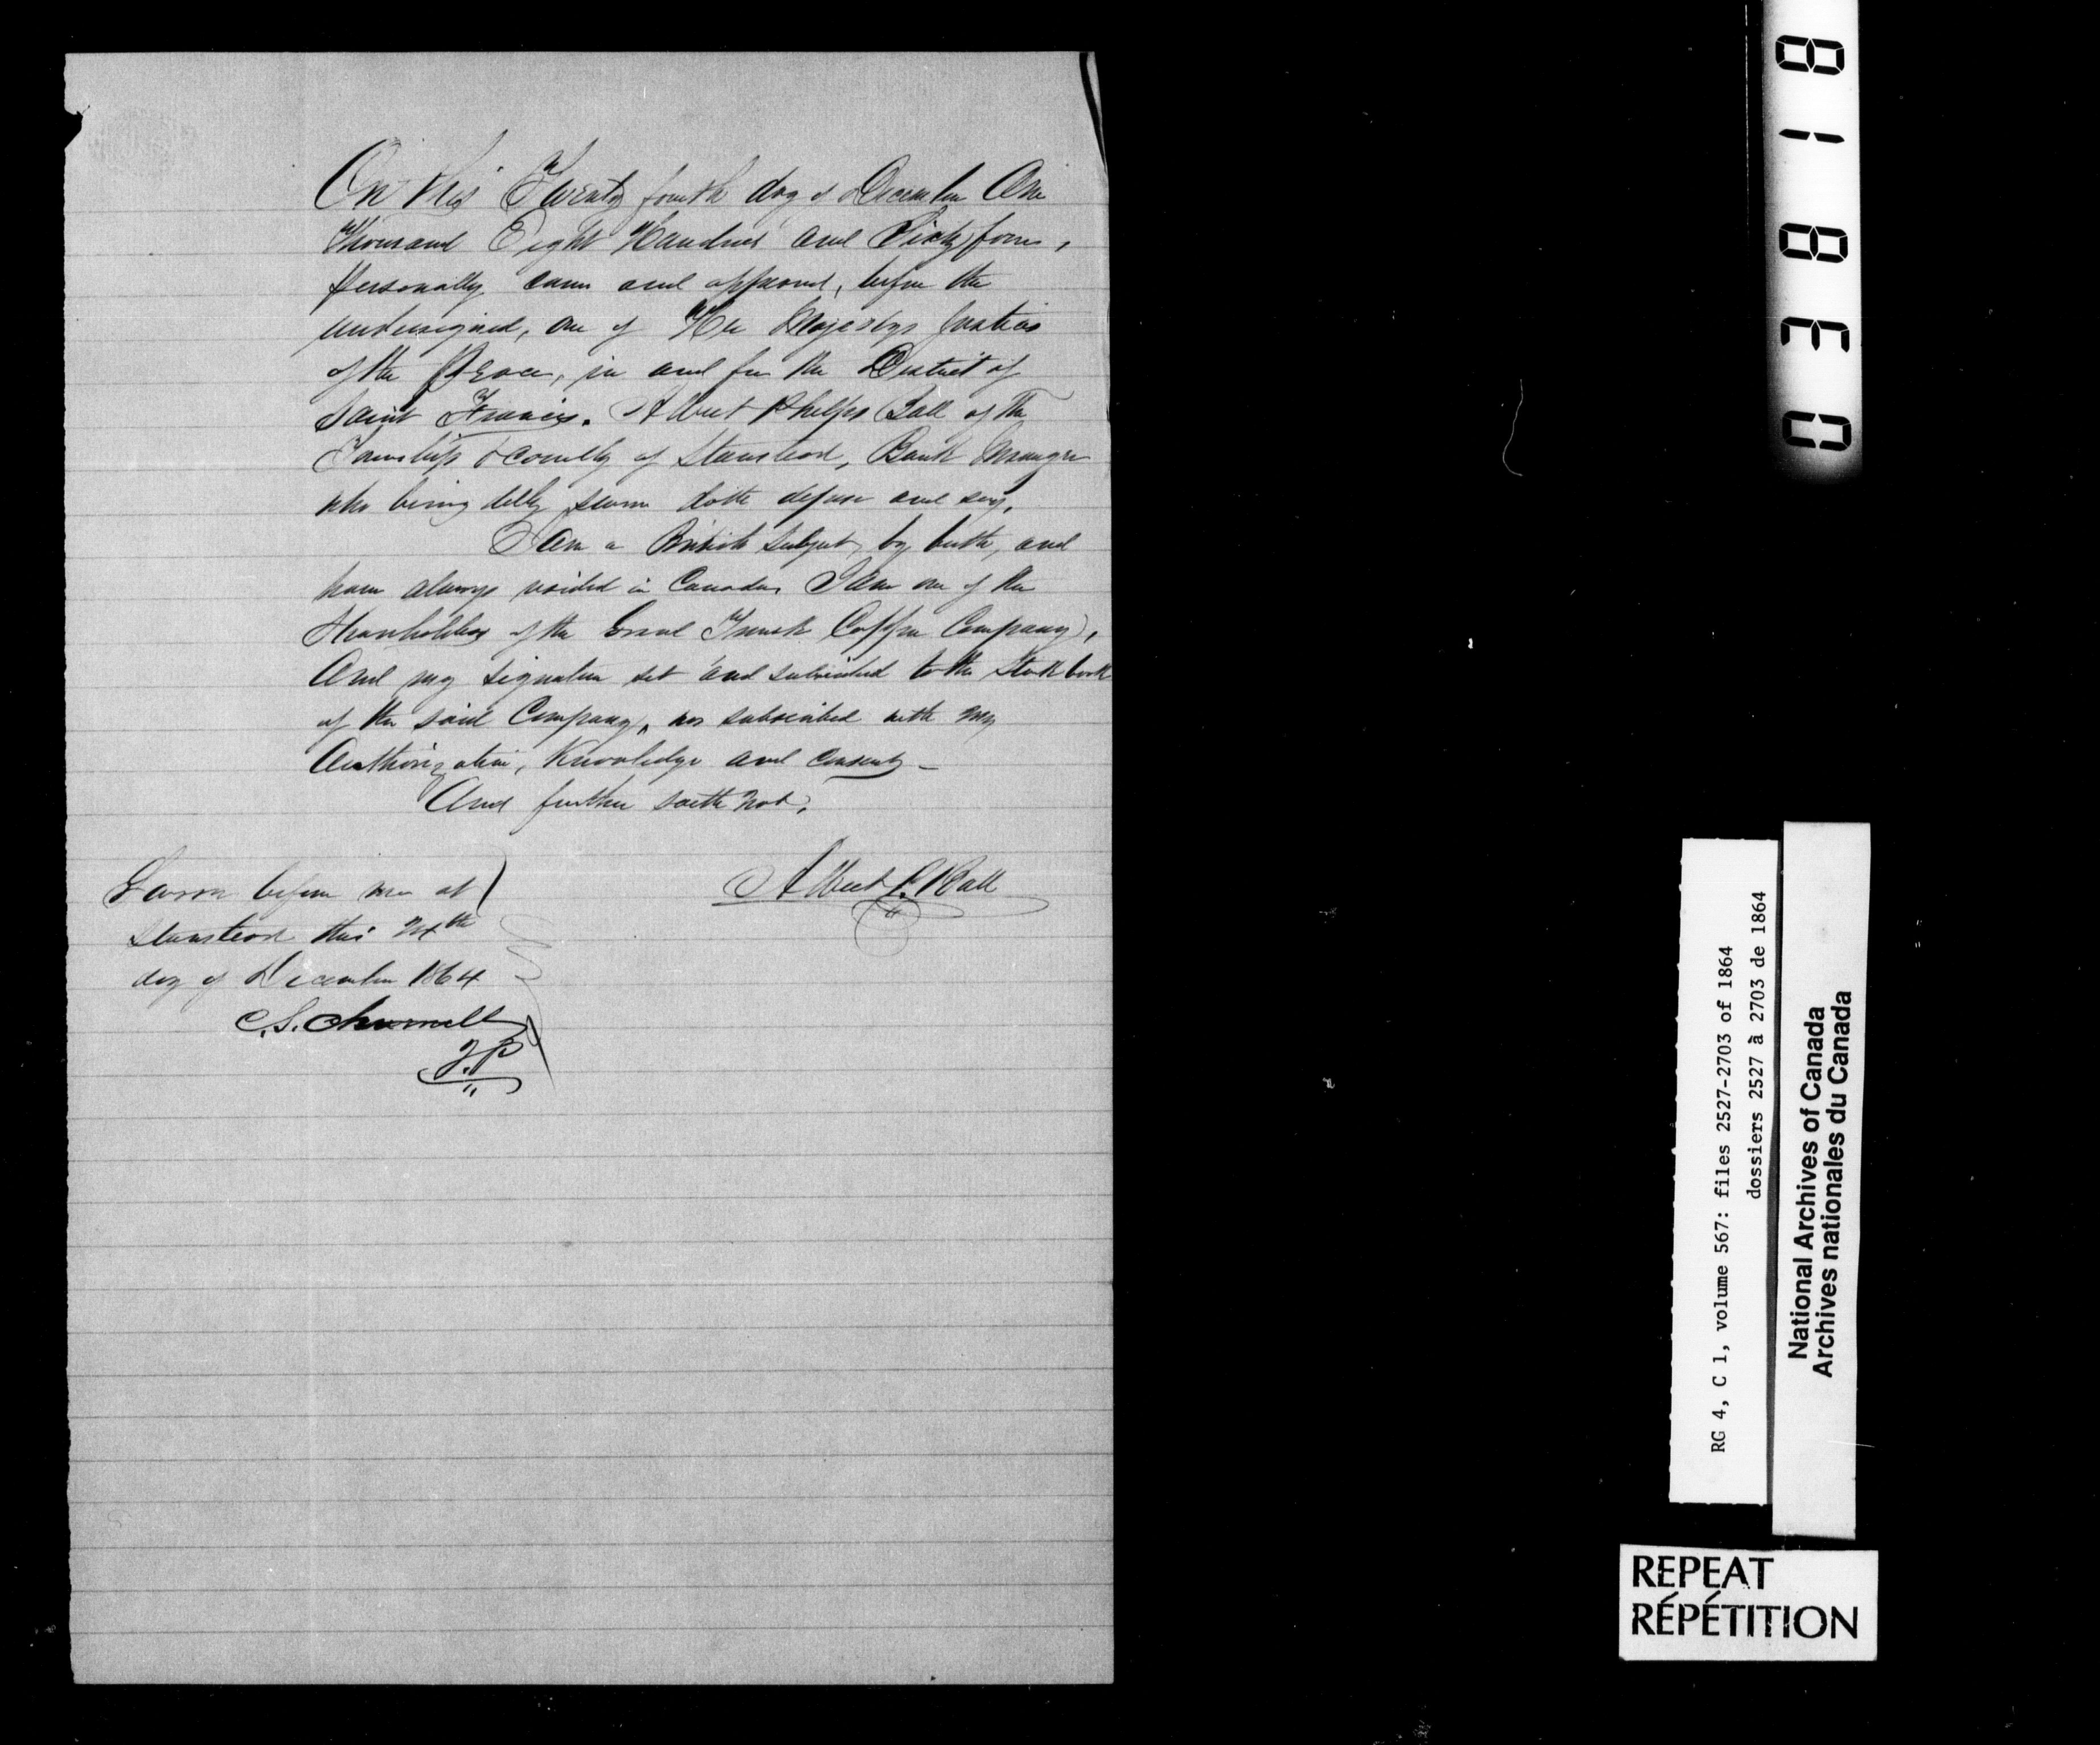 On this Twenty fourth day of December One
Thousand Eight Hundred and Sixty four,
personally came and appeared, before the
undersigned, one of Her Majestys Justices
of the Peace, in and for the District of
Saint Francis. Albert Phelps Ball of the
Township & County of Stanstead, Bank Manager
who being dully sworn doth depose and say,
I am a British Subject by birth, and
have always resided in Canada, I am one of the
Shareholders of the Grand Trunk Copper Company,
And my signature set and subscribed to the Stock book
of the said Company, was subscribed with my
Authorization, Knowledge and consent –
And further saith not.
Albert P. Ball
Sworn before me at
Stanstead this 24th
day of December 1864
C. S. Channell
J.P
03818
RG 4, C 1, volume 567: files 2527-2703 of 1864
dossiers 2527 à 2703 de 1864
National Archives of Canada
Archives nationales du Canada
REPEAT
RÉPÉTITION